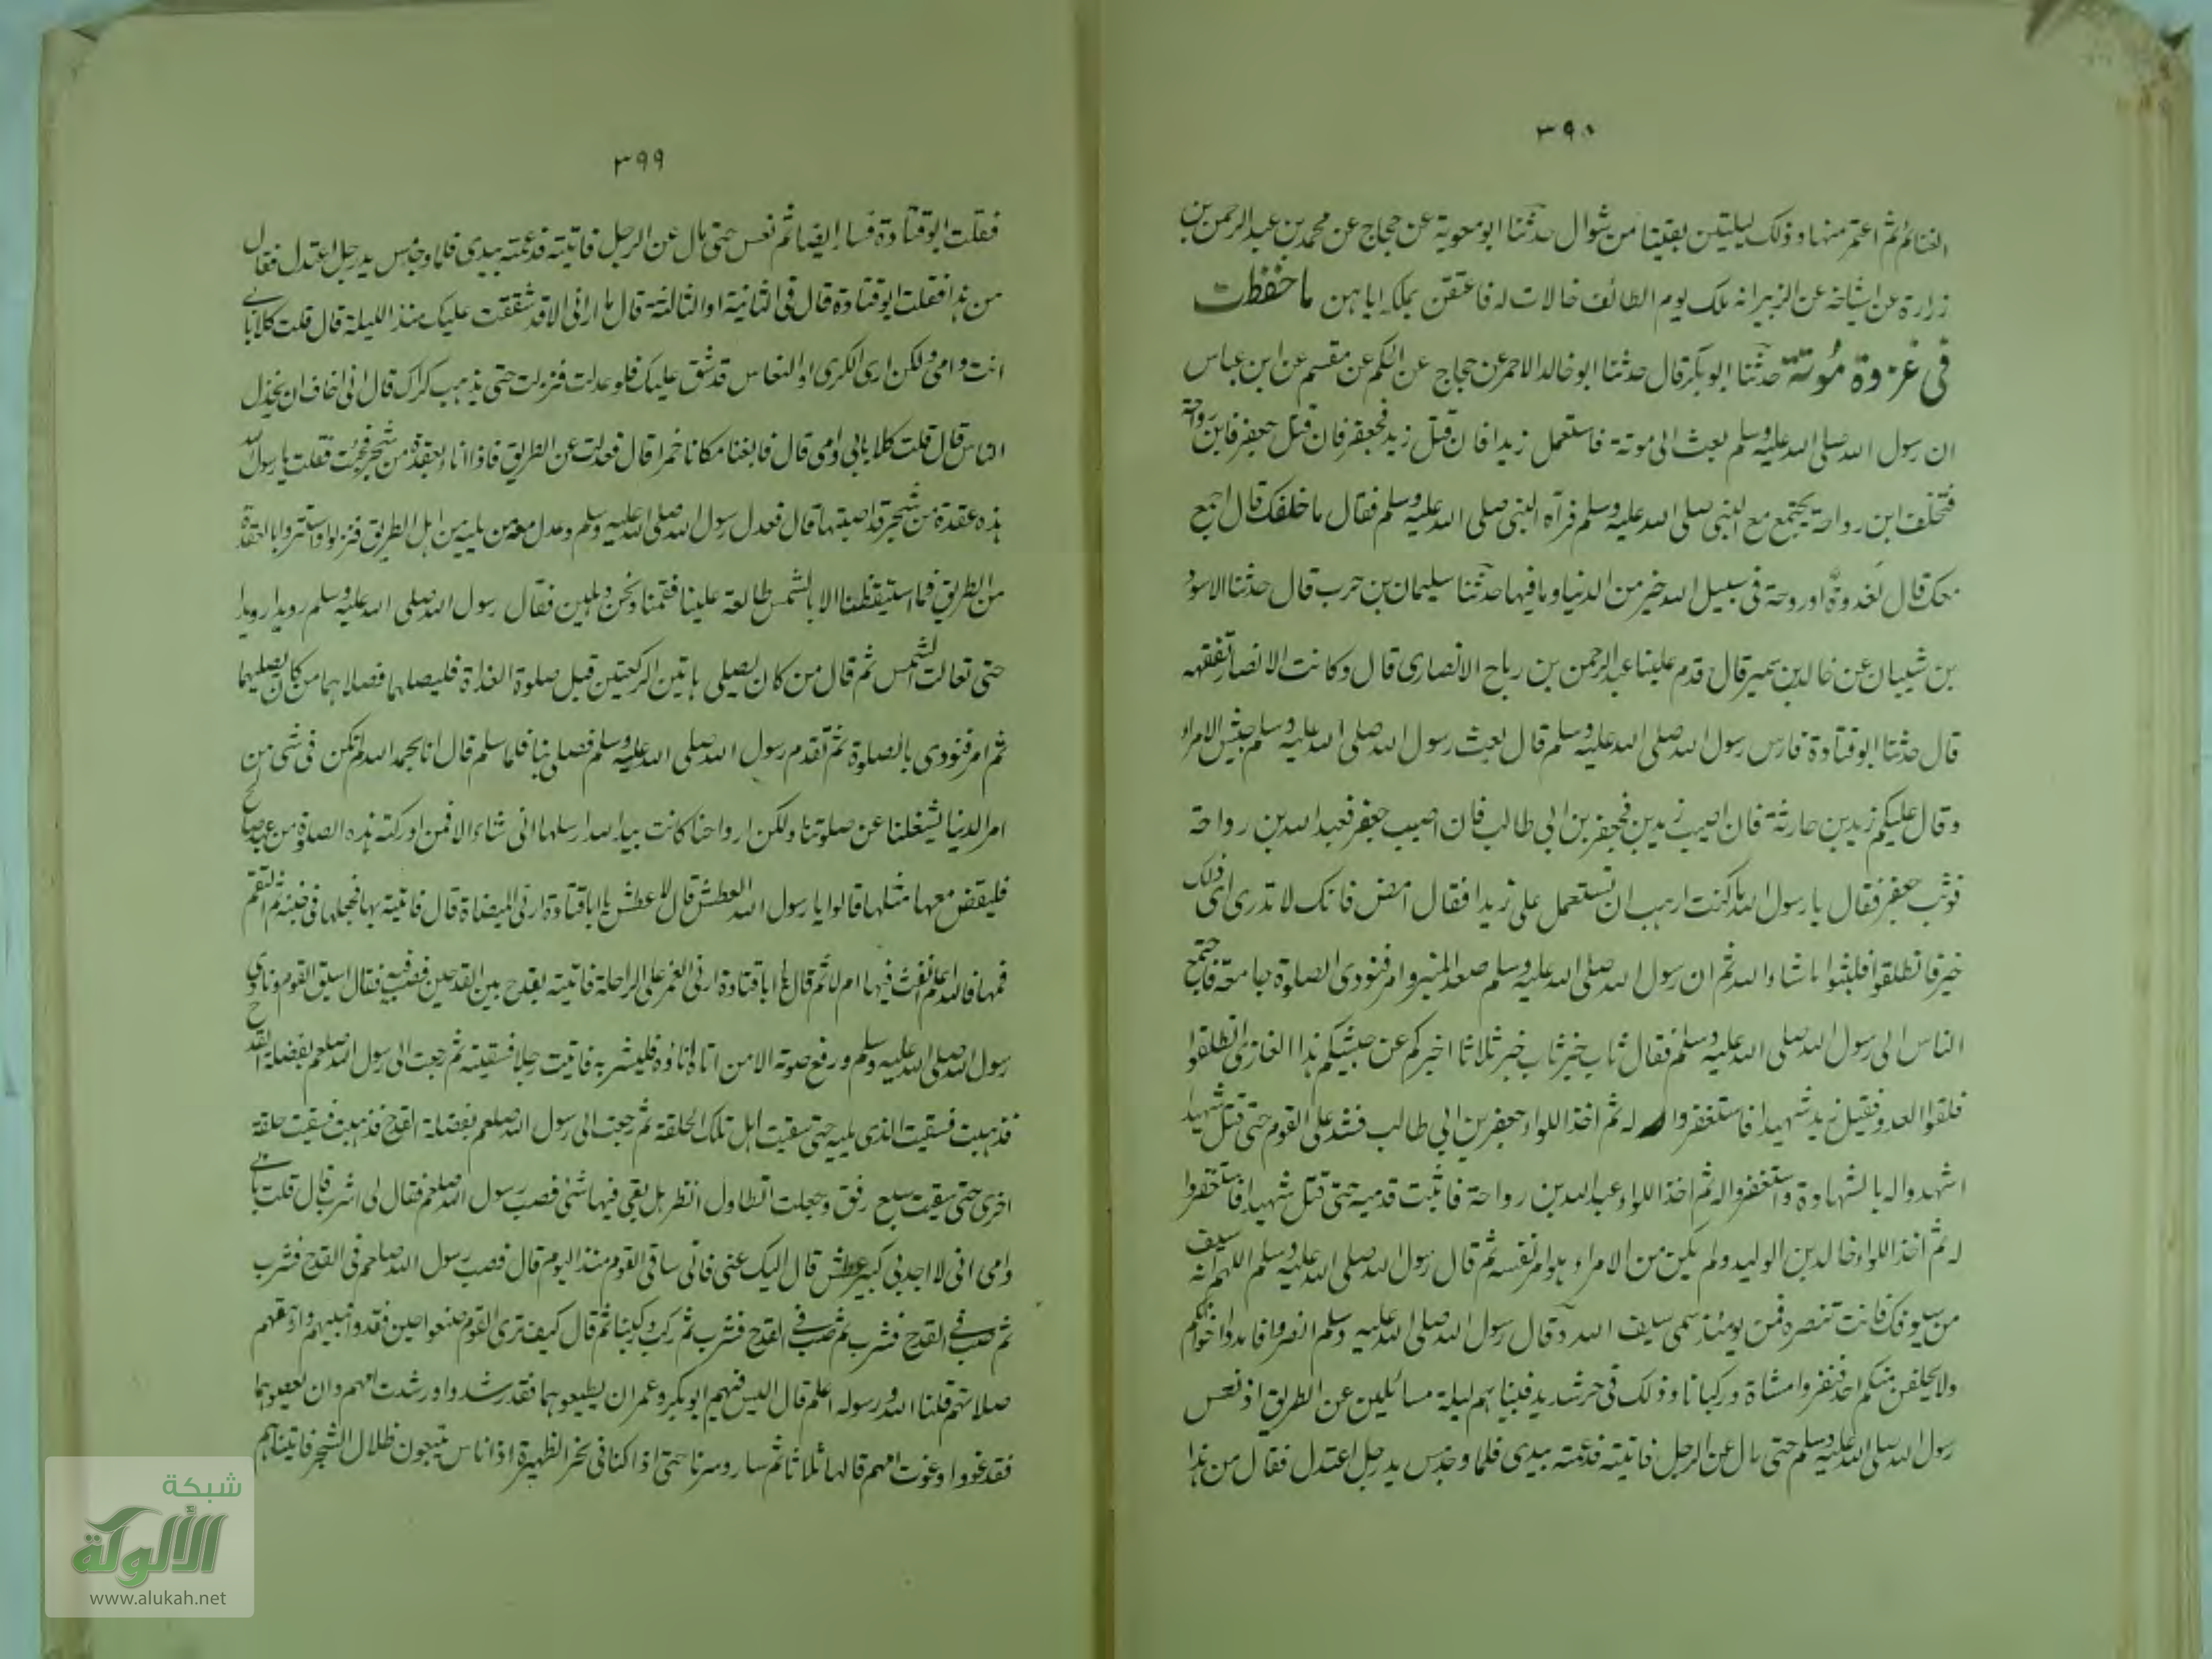 ٣٩٨
الغنائم ثم اعتمر منها وذلك ليلتين بقيتا من شوال حدثنا ابو معوية عن حجاج عن محمد بن عبد الرحمن بن
زرارة عن اشياخه عن الزبير انه ملك يوم الطائف خالات له فاعتقن بملكه اياهن ما حفظت
فى غزوة مُوتة حدثنا ابو بكر قال حدثنا ابو خالد الاحمر عن حجاج عن الحكم عن مقسم عن ابن عباس
ان رسول الله صلى الله عليه وسلم بعث الى موتة فاستعمل زيدا فان قتل زيد فجعفر فان قتل جعفر فابن رواحة
فتخلف ابن رواحة يجتمع مع النبى صلى الله عليه وسلم فرآه النبى صلى الله عليه وسلم فقال ما خلفك قال اجمع
معك قال لغدوة او روحة فى سبيل الله خير من الدنيا وما فيها حدثنا سليمان بن حرب قال حدثنا الاسود
بن شيبان عن خالد بن سمير قال قدم علينا عبد الرحمن بن رباح الانصارى قال وكانت الانصار تفقهه
قال حدثنا ابو قتادة فارس رسول الله صلى الله عليه وسلم قال بعث رسول الله صلى الله عليه وسلم جيش الامراء
وقال عليكم زيد بن حارثة فان اصيب زيد بن فجعفر بن ابى طالب فان اصيب جعفر فعبد الله بن رواحة
فوثب جعفر فقال يا رسول الله ما كنت ارهب ان تستعمل على زيدا فقال امض فانك لا تدرى اى ذلك
خير فانطلقوا فلبثوا ما شاء الله ثم ان رسول الله صلى الله عليه وسلم صعد المنبر وامر فنودى الصلوة جامعة فاجتمع
الناس الى رسول الله صلى الله عليه وسلم فقال ثاب خير ثاب خير ثلاثا اخبركم عن جيشكم هذا الغازى انطلقوا
فلقوا العدو فقتل زيد شهيدا فاستغفروا له ثم اخذ اللواء جعفر بن ابى طالب فشد على القوم حتى قتل شهيدا
اشهد واله بالشهادة واستغفروا له ثم اخذ اللواء عبد الله بن رواحة فاثبت قدميه حتى قتل شهيدا فاستغفروا
له ثم اخذ اللواء خالد بن الوليد ولم يكن من الامراء هو امر نفسه ثم قال رسول الله صلى الله عليه وسلم اللهم انه سيف
من سيوفك فانت تنصره فمن يومئذ سمى سيف الله وقال رسول الله صلى الله عليه وسلم انفروا فامدوا اخوانكم
ولا يتخلفن منكم احد فنفروا مشاة وركبانا وذلك فى حر شديد فبينا هم ليلة مسائلين عن الطريق اذ نعس
رسول الله صلى الله عليه وسلم حتى مال عن الرحل فاتيته فدعمته بيدى فلما وجد مس يد رجل اعتدل فقال من هذا
٣٩٩
فقلت ابو قتادة فسار ايضا ثم نعس حتى مال عن الرحل فاتيته فدعمته بيدى فلما وجد مس يد رجل اعتدل فقال
من هذا فقلت ابو قتادة قال فى الثانية او الثالثة قال ما ارانى الا قد شققت عليك منذ الليلة قال قلت كلا بابى
انت وامى ولكن ارى الكرى او النعاس قد شق عليك فلو عدلت فنزلت حتى يذهب كراك قال انى اخاف ان يخذل
الناس قال قلت كلا بابى وامى قال فابغنا مكانا خمرا قال فعدلت عن الطريق فاذا انا بعقدة من شجر فجئت فقلت يا رسول الله
هذه عقدة من شجر قد اصبتها قال فعدل رسول الله صلى الله عليه وسلم وعدل معه من يليه من اهل الطريق فنزلوا واستتروا بالعقدة
من الطريق فما استيقظنا الا بالشمس طالعة علينا فقمنا ونحن وهلين فقال رسول الله صلى الله عليه وسلم رويدا رويدا
حتى تعالت الشمس ثم قال من كان يصلى هاتين الركعتين قبل صلوة الغداة فليصلهما فصلاهما من كان يصليهما
ثم امر فنودى بالصلوة ثم تقدم رسول الله صلى الله عليه وسلم فصلى بنا فلما سلم قال انا بحمد الله لم نكن فى شى من
امر الدنيا يشغلنا عن صلوتنا ولكن ارواحنا كانت بيد الله ارسلها انى شاء الا فمن ادركته هذه الصلوة من عبد صالح
فليقض معها مثلها قالوا يا رسول الله العطش قال لا عطش يا ابا قتادة ارنى الميضاة قال فاتيته بها فجعلها فى ضبنه ثم التقم
فمها فالله اعلم انفث فيها ام لا ثم قال يا ابا قتادة ارنى الغمر على الراحلة فاتيته بقدح بين القدحين فصب فيه فقال اسق القوم ونادى
رسول الله صلى الله عليه وسلم ورفع صوته الا من اتاه اناؤه فليشربه فاتيت رجلا فسقيته ثم رجعت الى رسول الله صلعم بفضلة القدح
فذهبت فسقيت الذى يليه حتى سقيت اهل تلك الحلقة ثم رجعت الى رسول الله صلعم بفضلة القدح فذهبت فسقيت حلقة
اخرى حتى سقيت سبع رفق وجعلت اتطاول انظر هل بقى فيها شئ فصب رسول الله صلعم فقال لى اشرب قال قلت بابى
وامى انى لا اجد بى كبير عطش قال اليك عنى فانى ساقى القوم منذ اليوم قال فصب رسول الله صلعم فى القدح فشرب
ثم صب فى القدح فشرب ثم صب فى القدح فشرب ثم ركب وركبنا ثم قال كيف ترى القوم صنعوا حين فقدوا نبيهم وارهقتهم
صلاتهم قلنا الله ورسوله اعلم قال اليس فيهم ابو بكر وعمر ان يطيعوهما فقد رشدوا ورشدت امهم وان يعصوهما
فقد غووا وغوت امهم قالها ثلاثا ثم سار وسرنا حتى اذا كنا فى نحر الظهيرة اذا ناس يتبعون ظلال الشجر فاتيناهم
شبكة
الألوكة
www.alukah.net